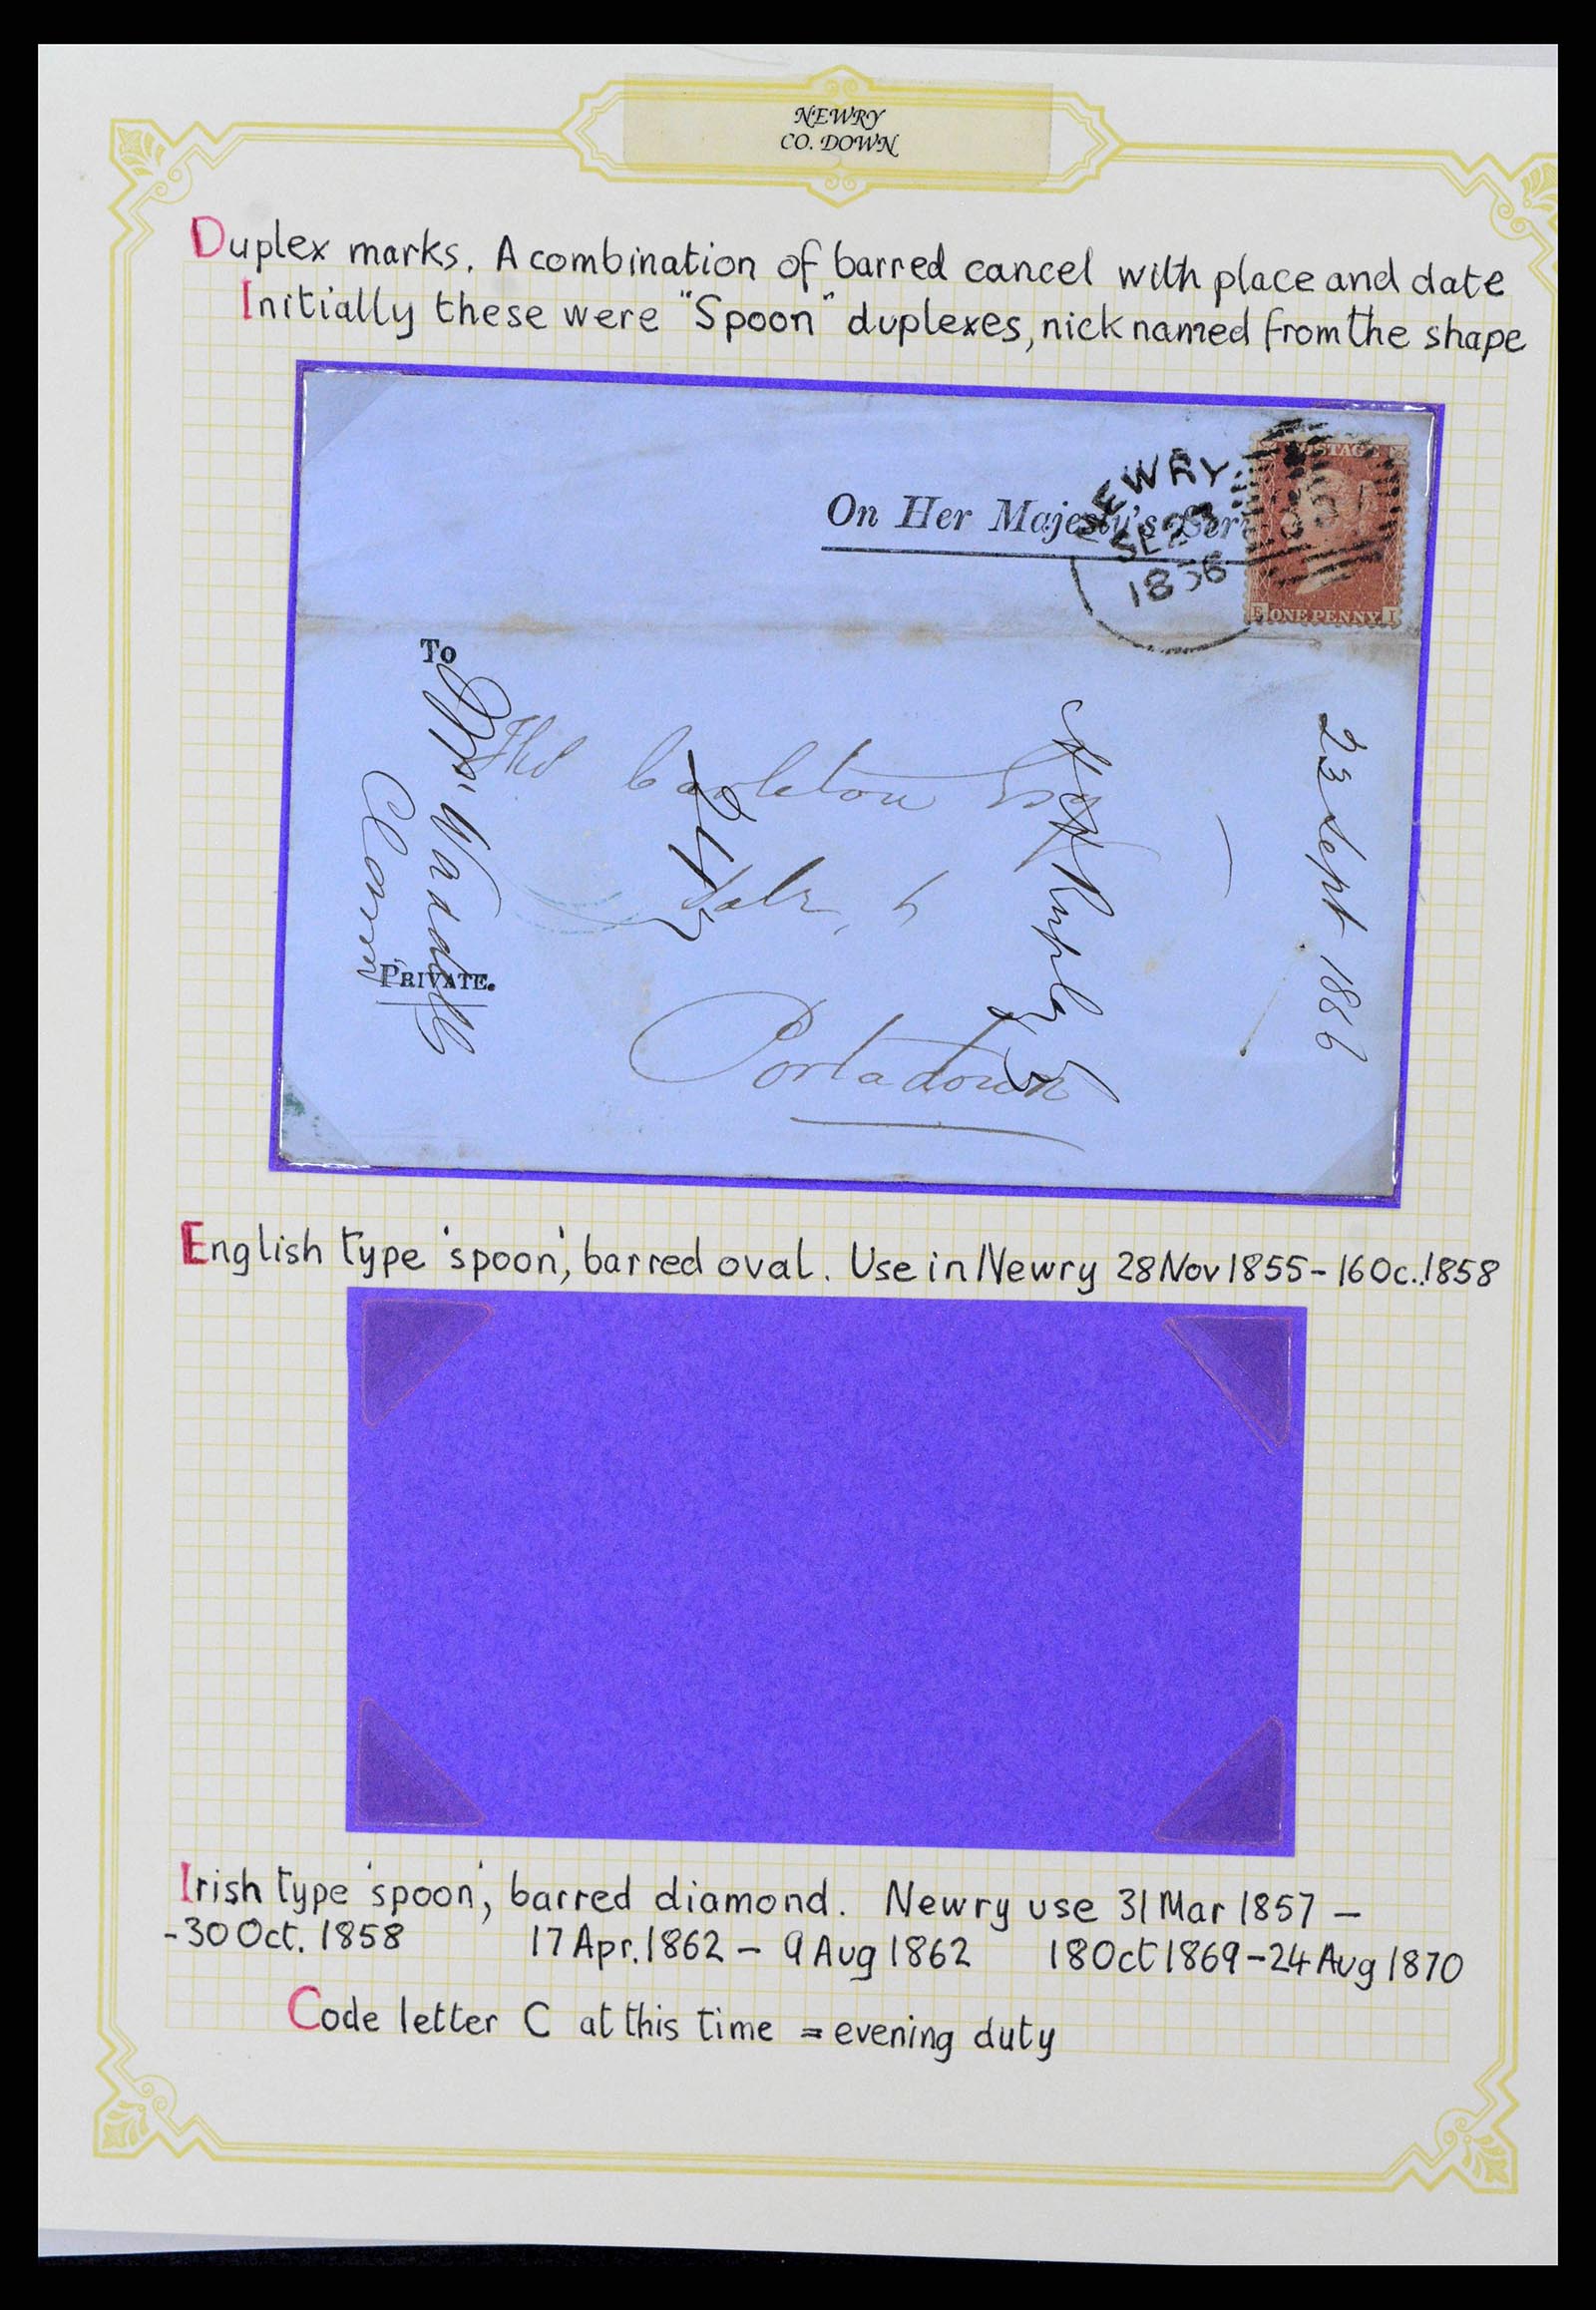 NEWRY
CO. DOWN
Duplex marks. A combination of barred cancel with place and date
Initially these were "Spoon" duplexes, nicknamed from the shape
NEWRY
SE 23
1856
POSTAGE
ONE PENNY
On Her Majesty's Ser
To
Carleton Esq
Portadown
PRIVATE.
Waddell
24
23 Sept 1856
English type 'spoon', barred oval. Use in Newry 28 Nov 1855 - 16 Oc.. 1858
Irish type 'spoon', barred diamond. Newry use 31 Mar 1857 -
- 30 Oct. 1858 17 Apr. 1862 - 9 Aug 1862 18 Oct 1869 - 24 Aug 1870
Code letter C at this time = evening duty